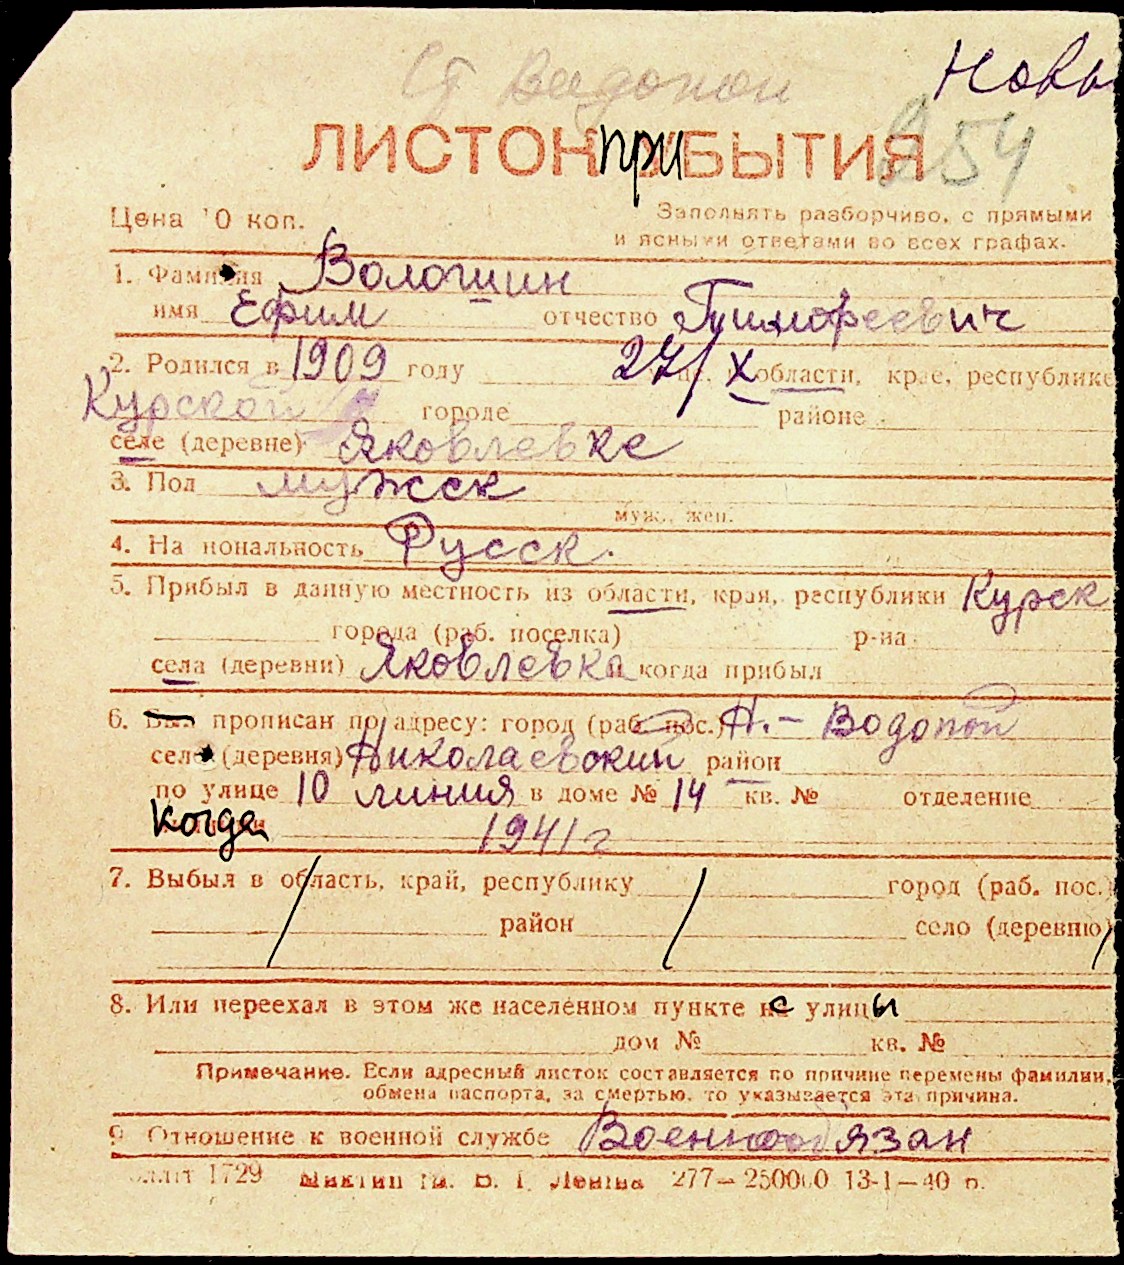 Новы
Ст Водопой
ЛИСТОК ПРИБЫТИЯ
254
Цена 10 коп.
Заполнять разборчиво, с прямыми
и ясными ответами во всех графах.
1. Фамилия Волошин
имя Ефим отчество Тимофеевич
2. Родился в 1909 году 27/X области, крае, республике
Курской городе районе
селе (деревне) Яковлевке
3. Пол мужск
муж., жен.
4. Национальность Русск.
5. Прибыл в данную местность из области, края, республики Курск
города (раб. поселка) р-на
села (деревни) Яковлевка когда прибыл
6. Был прописан по адресу: город (раб. пос.) Н.- Водопой
село (деревня) Николаевский район
по улице 10 линия в доме № 14 кв. № отделение
когда 1941 г
7. Выбыл в область, край, республику город (раб. пос.)
район село (деревню)
8. Или переехал в этом же населённом пункте с улицы
дом № кв. №
Примечание. Если адресный листок составляется по причине перемены фамилии,
обмена паспорта, за смертью, то указывается эта причина.
9. Отношение к военной службе Военнообязан
1729 им. В. И. Ленина 277—250000 13-1—40 п.